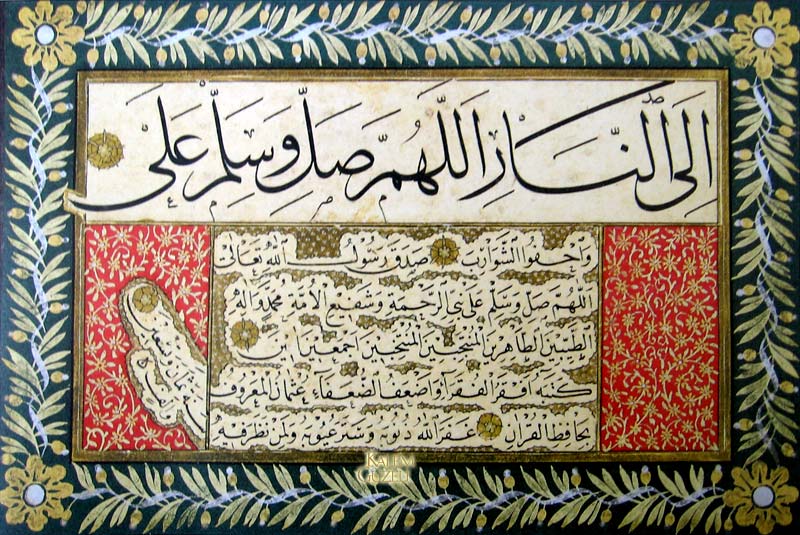 اِلَى النَّارِ اَللّٰهُمَّ صَلِّ وَسَلِّمْ عَلَى
واحفوا الشوارب صدق رسول الله تعالى
اللهم صل وسلم على نبي الرحمة وشفيع الامة محمد واله
الطيبين الطاهرين اجمعين امين
كتبه افقر الفقراء واضعف الضعفاء عثمان المعروف
بحافظ القران غفر الله ذنوبه وستر عيوبه ولمن نظر فيه
KALEM
GÜZELİ